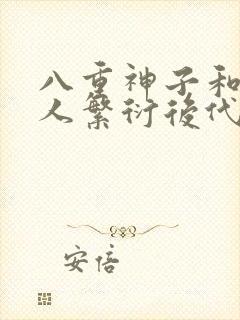 八重神子和
人繁衍後代
安倍